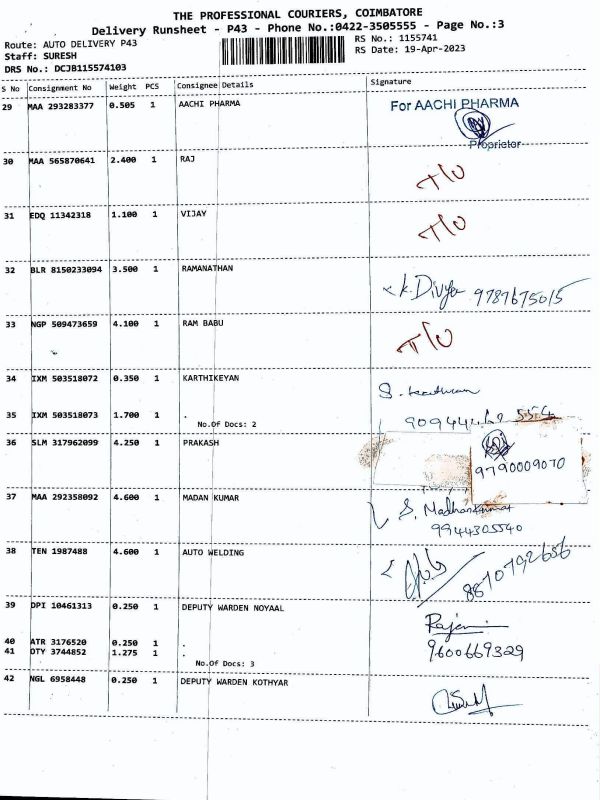 THE PROFESSIONAL COURIERS, COIMBATORE
Delivery Runsheet - P43 - Phone No.:0422-3505555 - Page No.:3
Route: AUTO DELIVERY P43 RS No.: 1155741
Staff: SURESH RS Date: 19-Apr-2023
DRS No.: DCJB115574103
S No Consignment No Weight PCS Consignee Details Signature
29 MAA 293283377 0.505 1 AACHI PHARMA For AACHI PHARMA
Proprietor
30 MAA 565870641 2.400 1 RAJ T/O
31 EDQ 11342318 1.100 1 VIJAY T/O
32 BLR 8150233094 3.500 1 RAMANATHAN K. Divya 9787675015
33 NGP 509473659 4.100 1 RAM BABU T/O
34 IXM 503518072 0.350 1 KARTHIKEYAN
35 IXM 503518073 1.700 1 .
No.Of Docs: 2
36 SLM 317962099 4.250 1 PRAKASH 9790009070
37 MAA 292358092 4.600 1 MADAN KUMAR S. Madhankumar
9944305540
38 TEN 1987488 4.600 1 AUTO WELDING 8870792686
39 DPI 10461313 0.250 1 DEPUTY WARDEN NOYAAL
40 ATR 3176520 0.250 1 .
41 OTY 3744852 1.275 1 . 9600669329
No.Of Docs: 3
42 NGL 6958448 0.250 1 DEPUTY WARDEN KOTHYAR